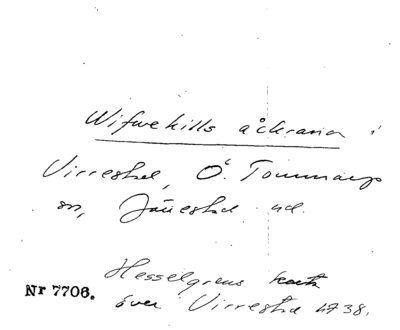 Wifwekills åckrarna i
Virrestad, Ö. Tommarps
sn, Järrestad hd.
Hesselgrens karta
Nr 7706.
över Virrestad 1738.